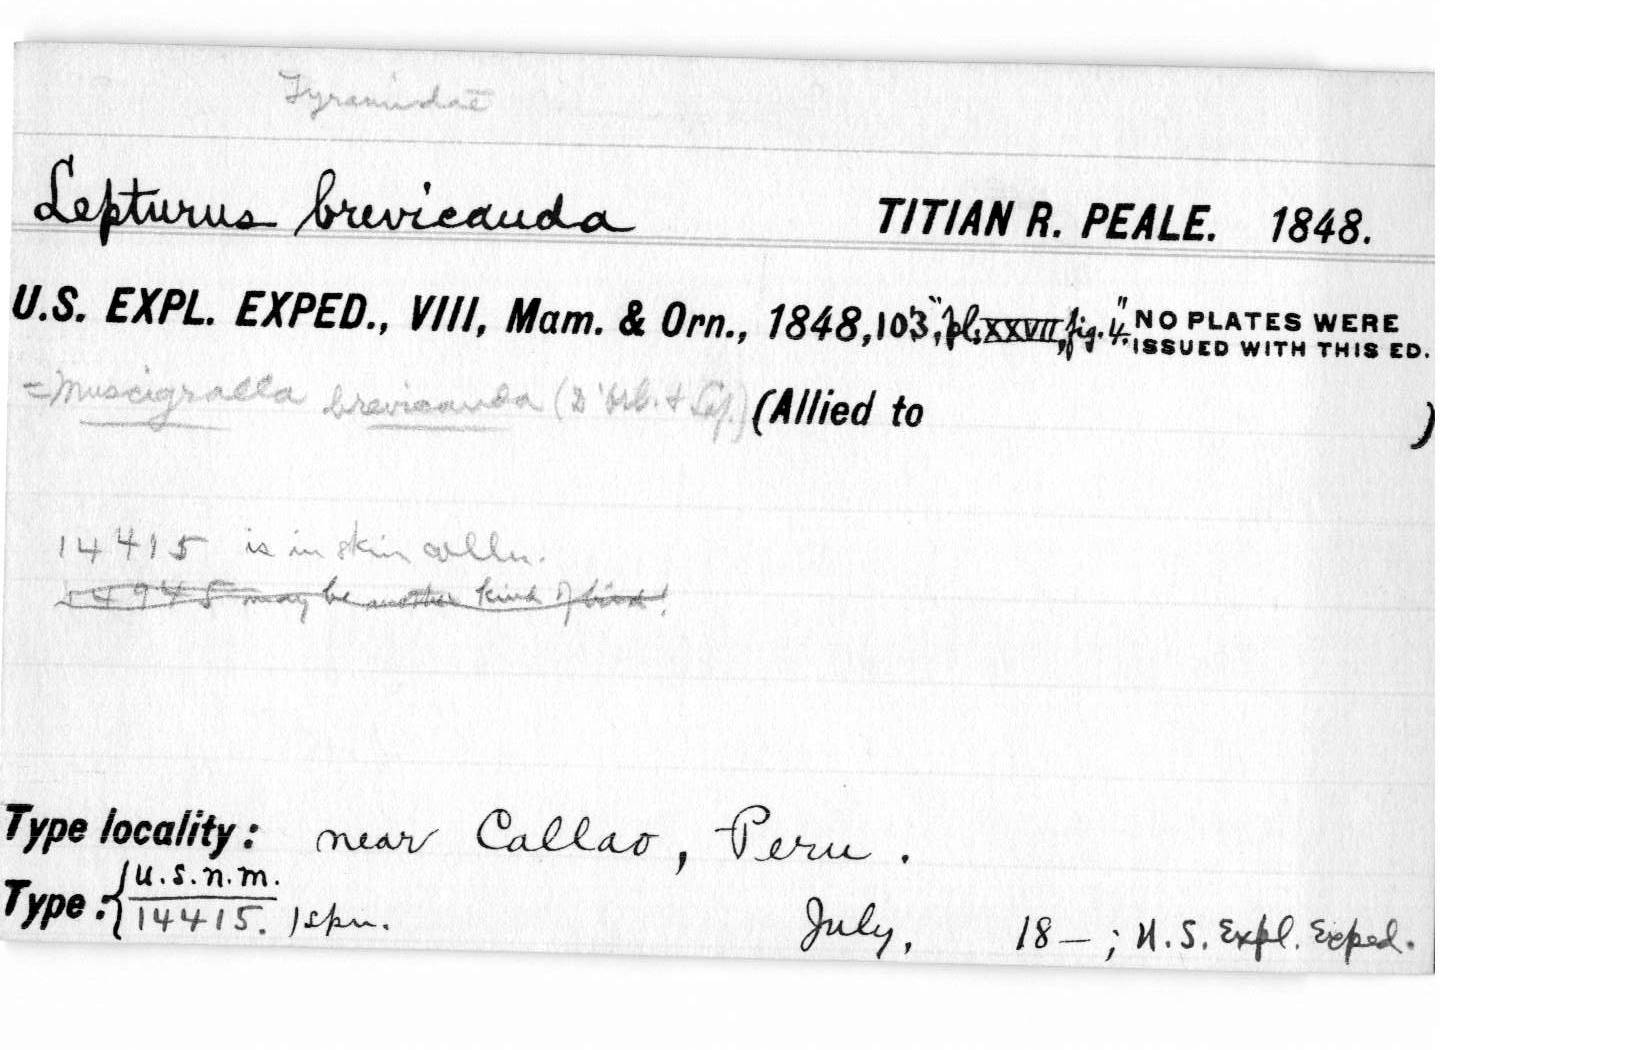 Tyrannidae
Lepturus brevicauda TITIAN R. PEALE. 1848.
U.S. EXPL. EXPED., VIII, Mam. & Orn., 1848, 103, "pl. XXVII, fig. 4." NO PLATES WERE ISSUED WITH THIS ED.
= Muscigralla brevicauda (D'Orb. & Laf.) (Allied to )
14415 is in skin colln.
14945 may be another kind of bird!
Type locality: near Callao, Peru.
Type: { U.S.N.M. 14415. 1 spn. July, 18—; U.S. Expl. Exped.